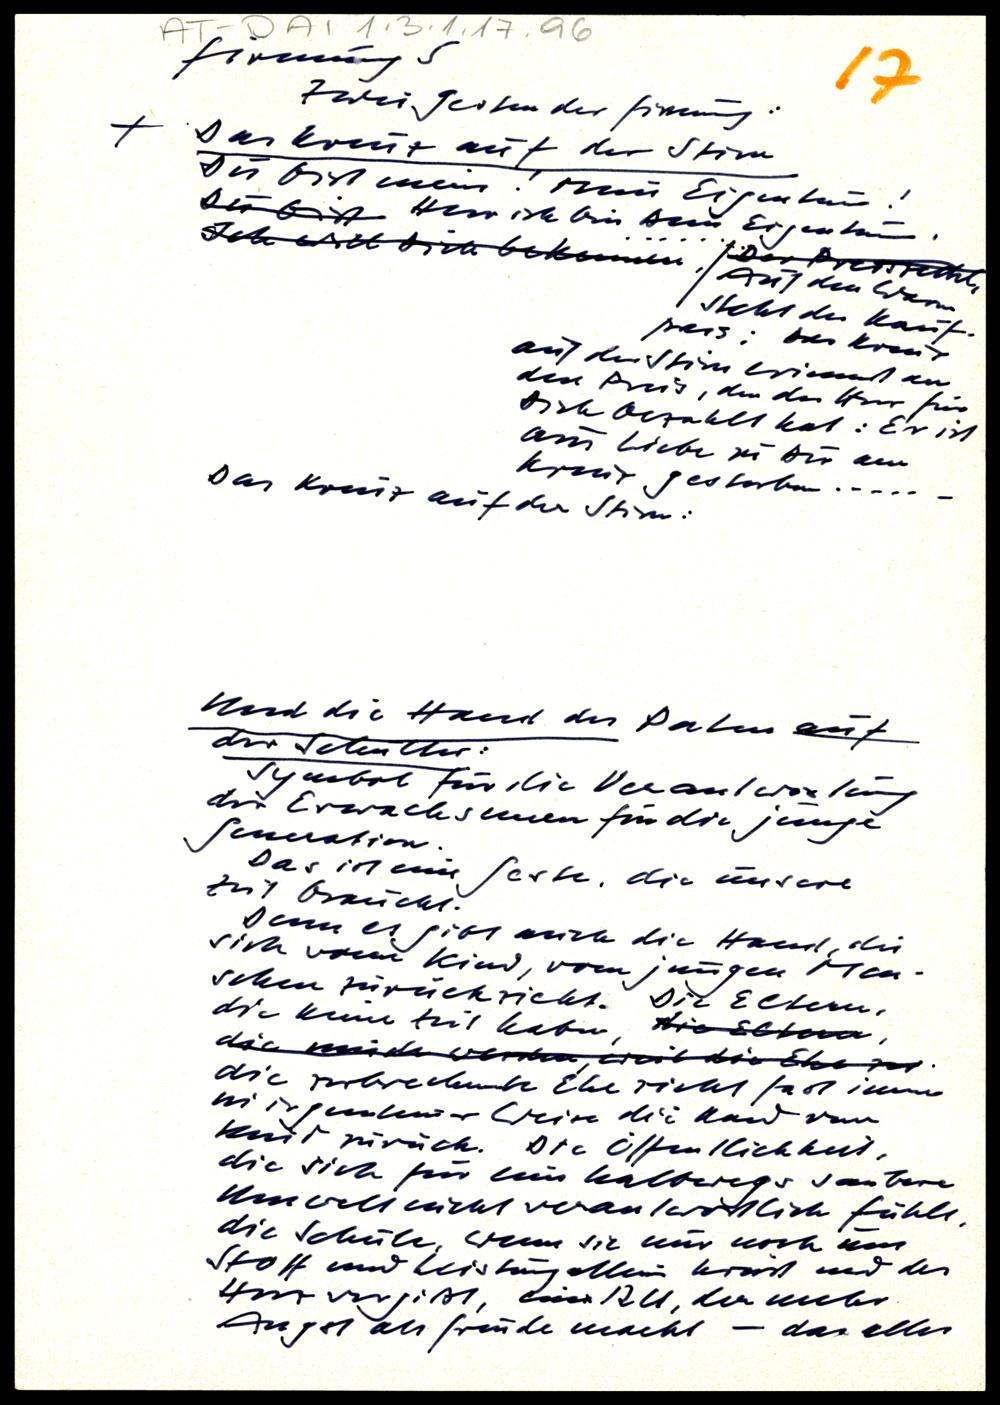 AT-DAI 1.3.1.17.96
17
Firmung 5
Zwei Gesten der Firmung:
+ Das Kreuz auf der Stirn
Du bist mein! Mein Eigentum!
Du bist Herr ich bin Dein Eigentum.
Ich will Dich bekennen. / Der Preiszettel
Auf den Waren
steht der Kauf-
preis: Das Kreuz
auf der Stirn erinnert an
den Preis, den der Herr für
Dich bezahlt hat: Er ist
aus Liebe zu Dir am
Kreuz gestorben ......
Das Kreuz auf der Stirn:
Und die Hand des Paten auf
der Schulter:
Symbol für die Verantwortung
der Erwachsenen für die junge
Generation.
Das ist eine Geste, die unsere
Zeit braucht.
Denn es gibt auch die Hand, die
sich vom Kind, vom jungen Men-
schen zurückzieht. Die Eltern,
die keine Zeit haben, die Eltern,
die müde werden, weil die Ehe zu
die zerbrechende Ehe zieht fast immer
in irgendeiner Weise die Hand vom
Kind zurück. Die Öffentlichkeit,
die sich für eine halbwegs saubere
Umwelt nicht verantwortlich fühlt,
die Schule, wenn sie nur noch um
Stoff und Leistung allein kreist und das
Herz vergißt, der mehr
Angst als Freude macht – das alles